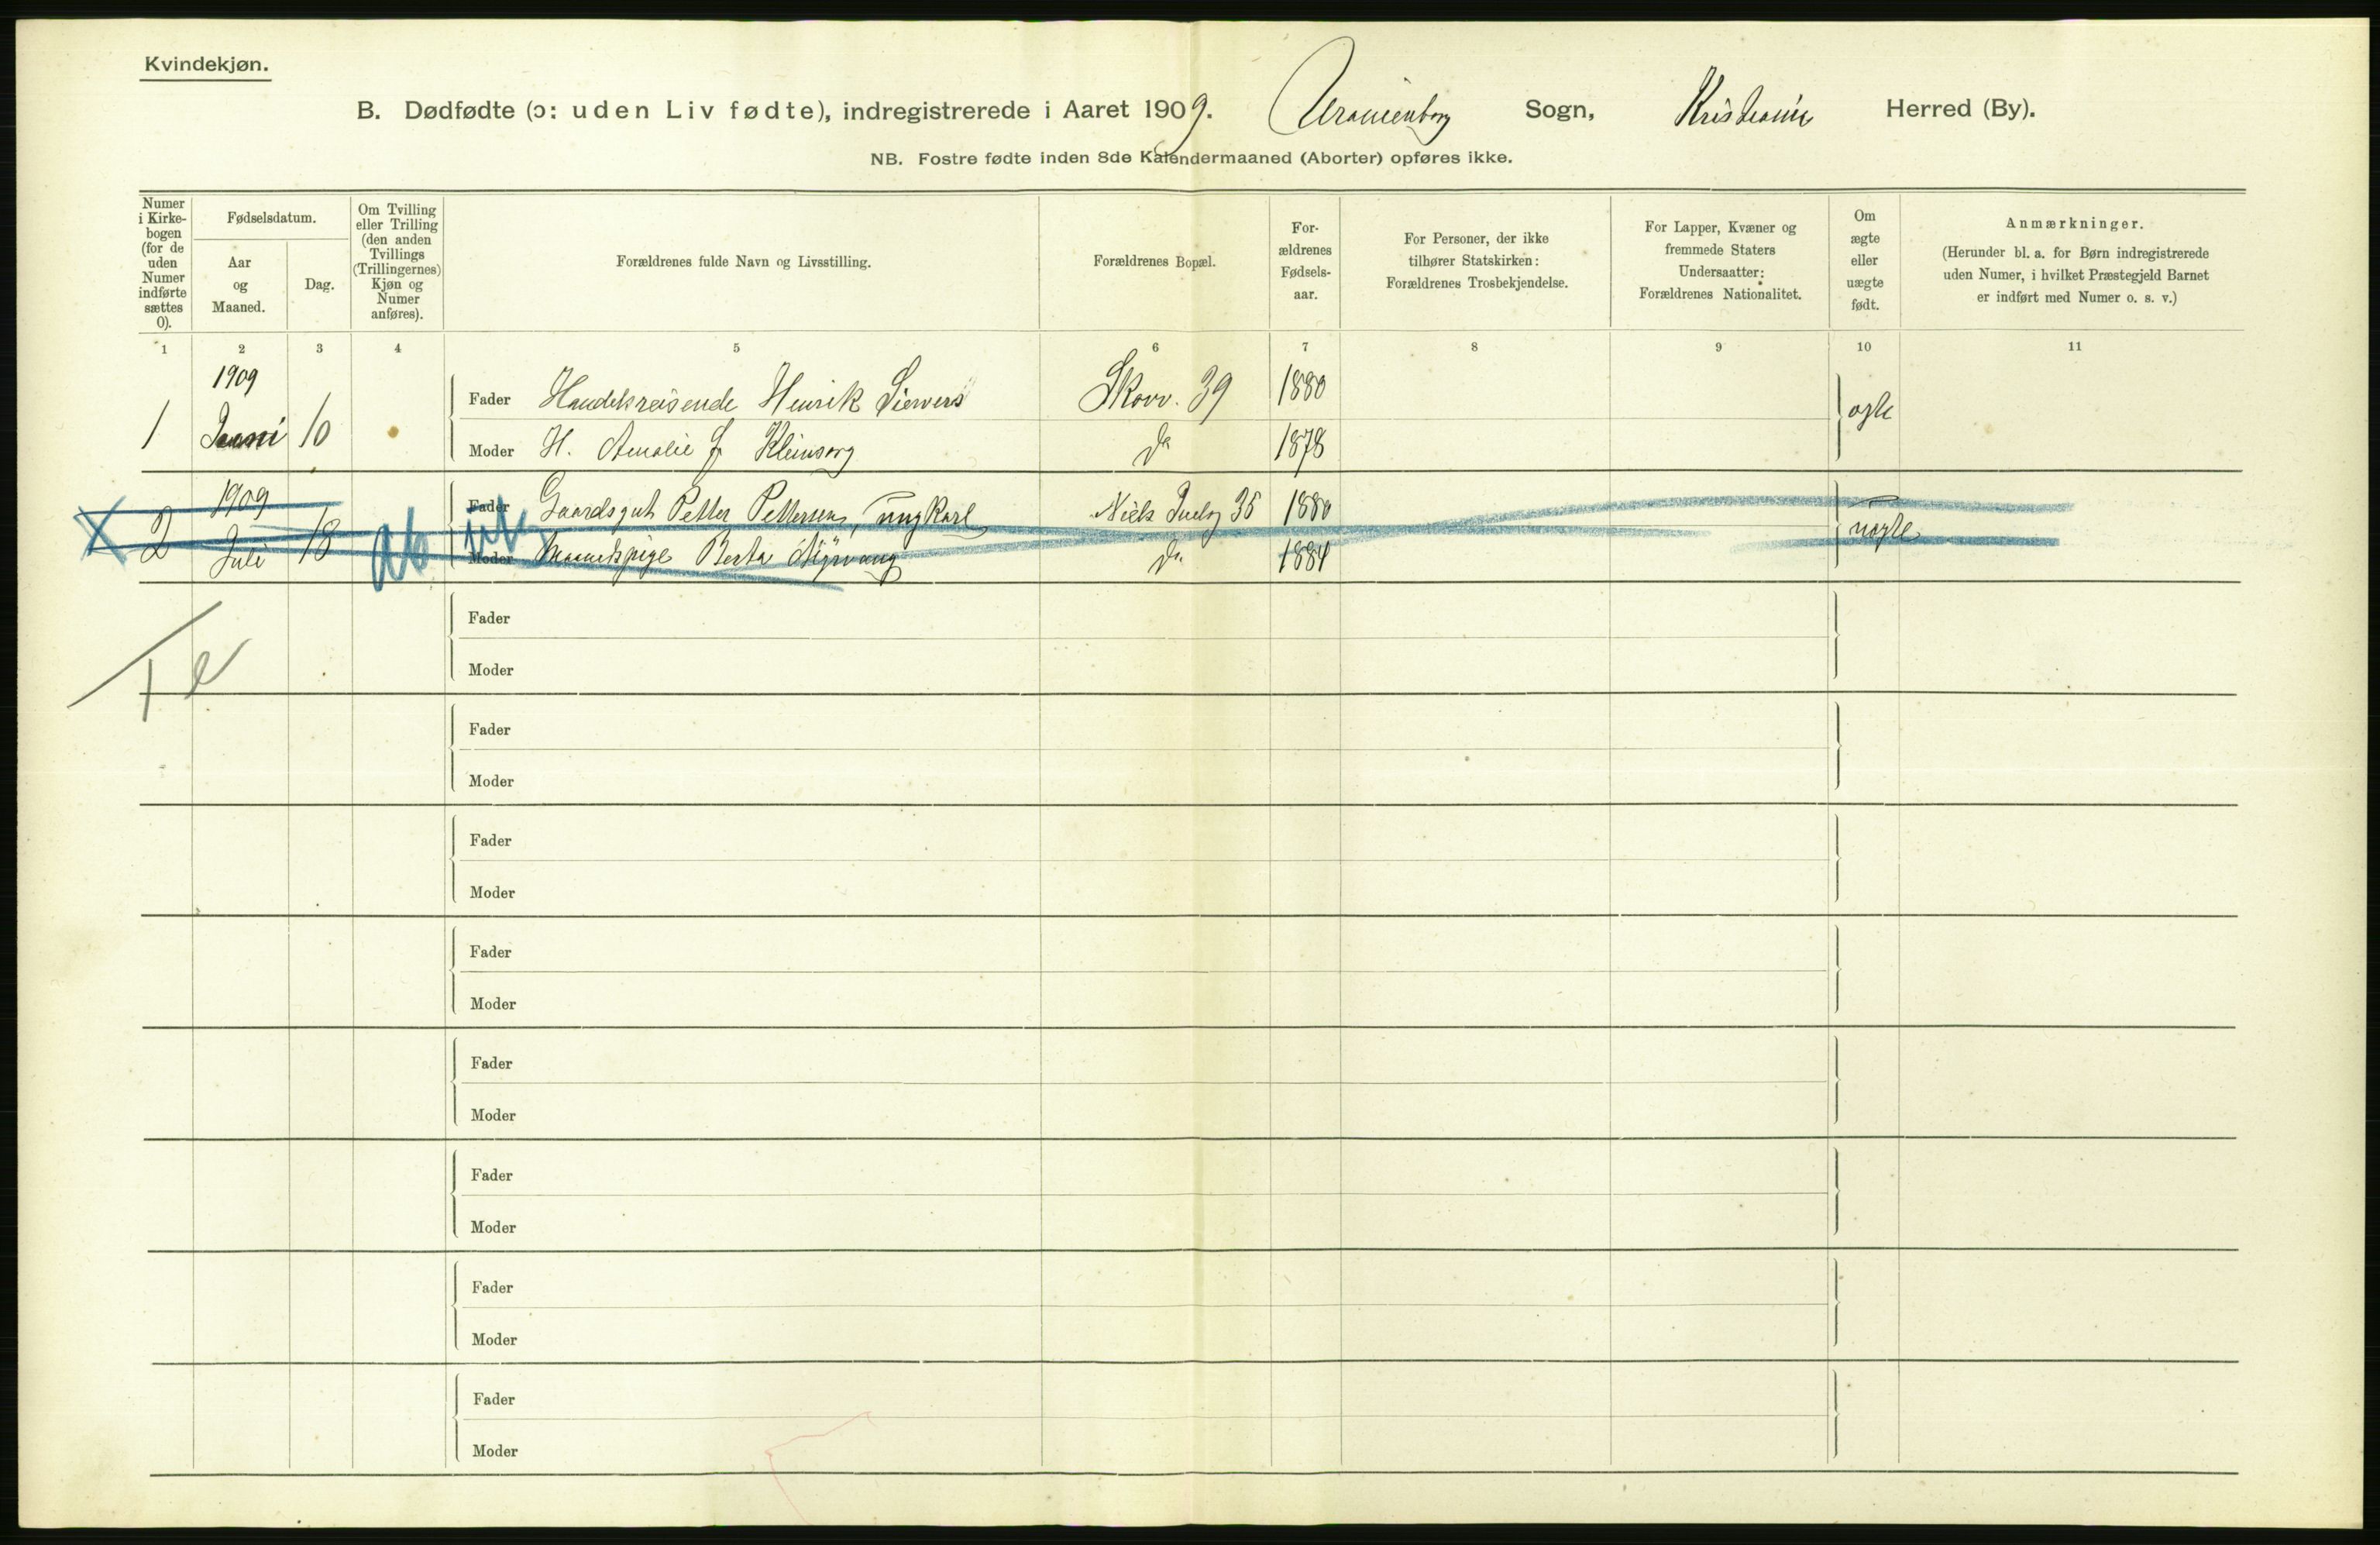 Kvindekjøn.
B. Dødfødte (ɔ: uden Liv fødte), indregistrerede i Aaret 1909. Uranienborg Sogn, Kristiania Herred (By).
NB. Fostre fødte inden 8de Kalendermaaned (Aborter) opføres ikke.
Numer i Kirke-bogen (for de uden Numer indførte sættes 0).
Fødselsdatum.
Aar og Maaned.
Dag.
Om Tvilling eller Trilling (den anden Tvillings (Trillingernes) Kjøn og Numer anføres).
Forældrenes fulde Navn og Livsstilling.
Forældrenes Bopæl.
For-ældrenes Fødsels-aar.
For Personer, der ikke tilhører Statskirken: Forældrenes Trosbekjendelse.
For Lapper, Kvæner og fremmede Staters Undersaatter: Forældrenes Nationalitet.
Om ægte eller uægte født.
Anmærkninger.
(Herunder bl. a. for Børn indregistrerede uden Numer, i hvilket Præstegjeld Barnet er indført med Numer o. s. v.)
1 2 3 4 5 6 7 8 9 10 11
1909
Fader Handelsreisende Henrik Siewers Skovv. 39 1880
1 Juni 10 ægte
Moder H. Amalie J. Kleinsorg do 1878
1909
Fader Gaardsgut Petter Pettersen, ungkarl Niels Juelsg 35 1880
2 Juli 18 uægte
Moder Berta do 1884
Fader
Moder
Fader
Moder
Fader
Moder
Fader
Moder
Fader
Moder
Fader
Moder
Fader
Moder
Fader
Moder